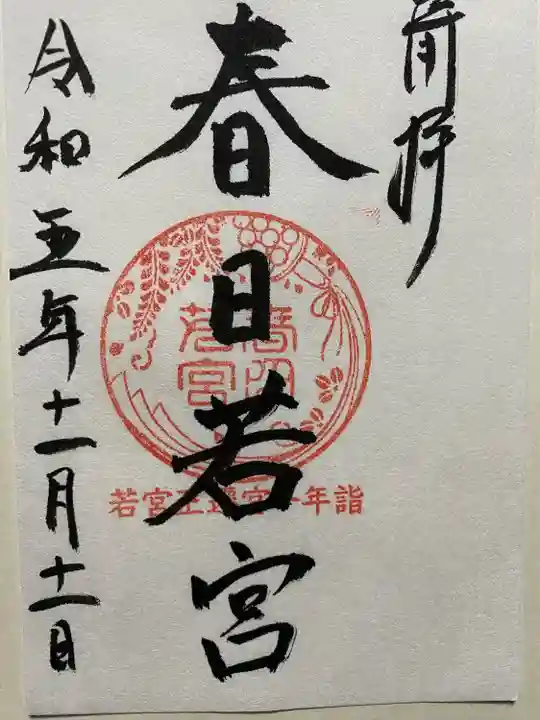 奉拝
春日若宮
令和五年十一月十一日
春日
若宮
若宮正遷宮一年詣